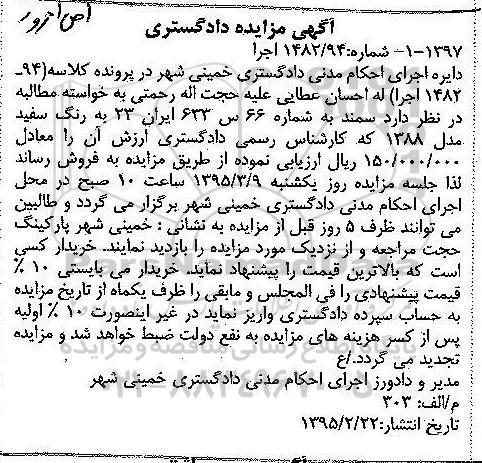 آگهی مزایده دادگستری
۱-۱۳۹۷- شماره:۱۴۸۲/۹۴ اجرا
دایره اجرای احکام مدنی دادگستری خمینی شهر در پرونده کلاسه(۹۴ـ
۱۴۸۲ اجرا) له احسان عطایی علیه حجت اله رحمتی به خواسته مطالبه
در نظر دارد سمند به شماره ۶۶ س ۶۳۳ ایران ۲۳ به رنگ سفید
مدل ۱۳۸۸ که کارشناس رسمی دادگستری ارزش آن را معادل
۱۵۰/۰۰۰/۰۰۰ ریال ارزیابی نموده از طریق مزایده به فروش رساند
لذا جلسه مزایده روز یکشنبه ۱۳۹۵/۳/۹ ساعت ۱۰ صبح در محل
اجرای احکام مدنی دادگستری خمینی شهر برگزار می گردد و طالبین
می توانند ظرف ۵ روز قبل از مزایده به نشانی : خمینی شهر پارکینگ
حجت مراجعه و از نزدیک مورد مزایده را بازدید نمایند. خریدار کسی
است که بالاترین قیمت را پیشنهاد نماید. خریدار می بایستی ۱۰ ٪
قیمت پیشنهادی را فی المجلس و مابقی را ظرف یکماه از تاریخ مزایده
به حساب سپرده دادگستری واریز نماید در غیر اینصورت ۱۰ ٪ اولیه
پس از کسر هزینه های مزایده به نفع دولت ضبط خواهد شد و مزایده
تجدید می گردد./ع
مدیر و دادورز اجرای احکام مدنی دادگستری خمینی شهر
م/الف: ۳۰۳
تاریخ انتشار:۱۳۹۵/۲/۲۲